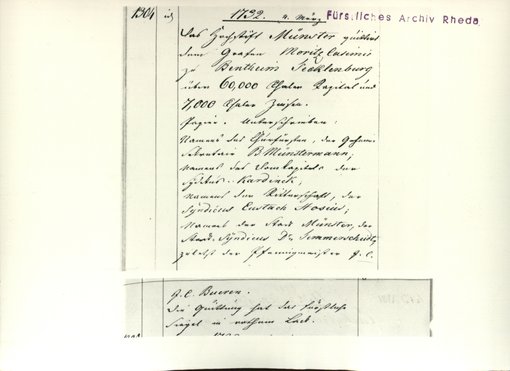 1304
1732. 4. März
Fürstliches Archiv Rheda
Das Hochstift Münster quittirt
dem Grafen Moritz Casimir
zu Bentheim Tecklenburg
über 60,000 Thaler Kapital und
7,000 Thaler Zinsen.
Papier. Unterschrieben:
Namens des Churfürsten, der Geheim-
sekretair B. Münstermann;
Namens des Domkapitels der
Syndikus Karderick,
Namens der Ritterschaft, der
Syndicus Eustach Hosius;
Namens der Stadt Münster, der
Stadt-Syndicus Dr.
zuletzt der Pfennigmeister J. C.
J. C. Bueren.
Die Quittung hat das fürstliche
Siegel in rothem Lack.